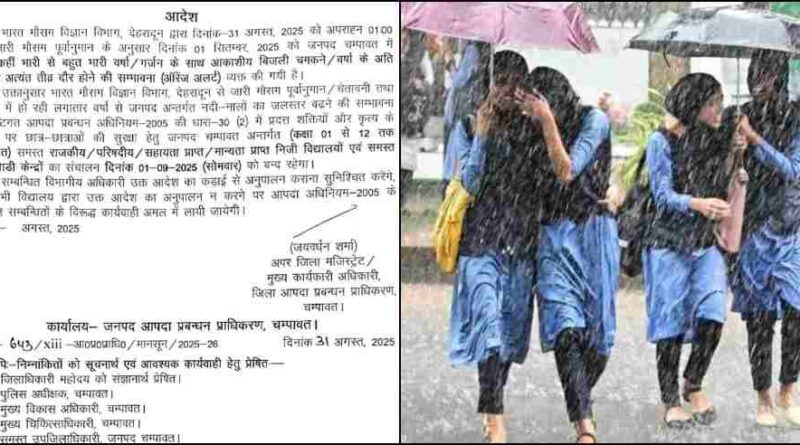 आदेश
भारत मौसम विज्ञान विभाग, देहरादून द्वारा दिनांक-31 अगस्त, 2025 को अपराह्न 01:00
जारी मौसम पूर्वानुमान के अनुसार दिनांक 01 सितम्बर, 2025 को जनपद चम्पावत में
कहीं भारी से बहुत भारी वर्षा/गर्जन के साथ आकाशीय बिजली चमकने/वर्षा के अति
अत्यंत तीव्र दौर होने की सम्भावना (ऑरेंज अलर्ट) व्यक्त की गयी है।
उक्तानुसार भारत मौसम विज्ञान विभाग, देहरादून से जारी मौसम पूर्वानुमान/चेतावनी तथा
में हो रही लगातार वर्षा से जनपद अन्तर्गत नदी-नालों का जलस्तर बढने की सम्भावना
आपदा प्रबन्धन अधिनियम-2005 की धारा-30 (2) में प्रदत्त शक्तियों और कृत्य के
पर छात्र-छात्राओं की सुरक्षा हेतु जनपद चम्पावत अन्तर्गत (कक्षा 01 से 12 तक
समस्त राजकीय/परिषदीय/सहायता प्राप्त/मान्यता प्राप्त निजी विद्यालयों एवं समस्त
केन्द्रों का संचालन दिनांक 01-09-2025 (सोमवार) को बन्द रहेगा।
सम्बन्धित विभागीय अधिकारी उक्त आदेश का कड़ाई से अनुपालन कराना सुनिश्चित करेंगे,
भी विद्यालय द्वारा उक्त आदेश का अनुपालन न करने पर आपदा अधिनियम-2005 के
सम्बन्धितों के विरूद्ध कार्यवाही अमल में लायी जायेगी।
- अगस्त, 2025
(जयवर्धन शर्मा)
अपर जिला मजिस्ट्रेट/
मुख्य कार्यकारी अधिकारी,
जिला आपदा प्रबन्धन प्राधिकरण,
चम्पावत।
कार्यालय- जनपद आपदा प्रबन्धन प्राधिकरण, चम्पावत।
- 643/xiii -आ0प्र0प्राधि0/मानसून/2025-26 दिनांक 31 अगस्त, 2025
पिः-निम्नांकितों को सूचनार्थ एवं आवश्यक कार्यवाही हेतु प्रेषित-
जिलाधिकारी महोदय को संज्ञानार्थ प्रेषित।
पुलिस अधीक्षक, चम्पावत।
मुख्य विकास अधिकारी, चम्पावत।
मुख्य चिकित्साधिकारी, चम्पावत।
समस्त उपजिलाधिकारी, जनपद चम्पावत